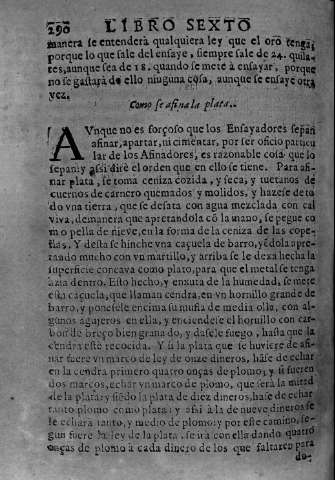 290 LIBRO SEXTO
manera se entenderà qualquiera ley que el oro tenga,
porque lo que sale del ensaye, siempre sale de 24. quila-
tes, aunque sea de 18. quando se mete à ensayar, porque
no se gastarà de ello ninguna cosa, aunque se ensaye otra
vez.
Como se afina la plata.
AVnque no es forçoso que los Ensayadores sepan
afinar, apartar, ni cimentar, por ser oficio particu
lar de los Afinadores, es razonable cosa que lo
sepan: y assi dirè el orden que en ello se tiene. Para afi-
nar plata, se toma ceniza cozida, y seca, y tuetanos de
cuernos de carnero quemados y molidos, y hazese de to
do vna tierra, que se desata con agua mezclada con cal
viva, de manera que apretandola cõ la mano, se pegue co
mo pella de nieve, en la forma de la ceniza de las cope-
llas. Y desta se hinche vna caçuela de barro, yēdola apre-
tando mucho con vn martillo, y arriba se le dexa hecha la
superficie concava como plato, para que el metal se tenga
àzia dentro. Esto hecho, y enxuta de la humedad, se mete
esta caçuela, que llaman cendra, en vn hornillo grande de
barro, y ponesele encima su mufla de media olla, con al-
gunos agujeros en ella, y enciendese el hornillo con car-
bon de breço bien granado, y dasele fuego, hasta que la
cendra estè recocida. Y si la plata que se huviere de afi-
nar fuere vn marco de ley de onze dineros, hase de echar
en la cendra primero quatro onças de plomo; y si fueren
dos marcos, echar vn marco de plomo, que serà la mitad
de la plata: y siēdo la plata de diez dineros, hase de echar
tanto plomo como plata: y assi à la de nueve dineros se
le echarà tanto, y medio de plomo: y por este camino, se-
gun fuere la ley de la plata, se irà con ella dando quatro
onças de plomo à cada dinero de los que faltaren para
do-